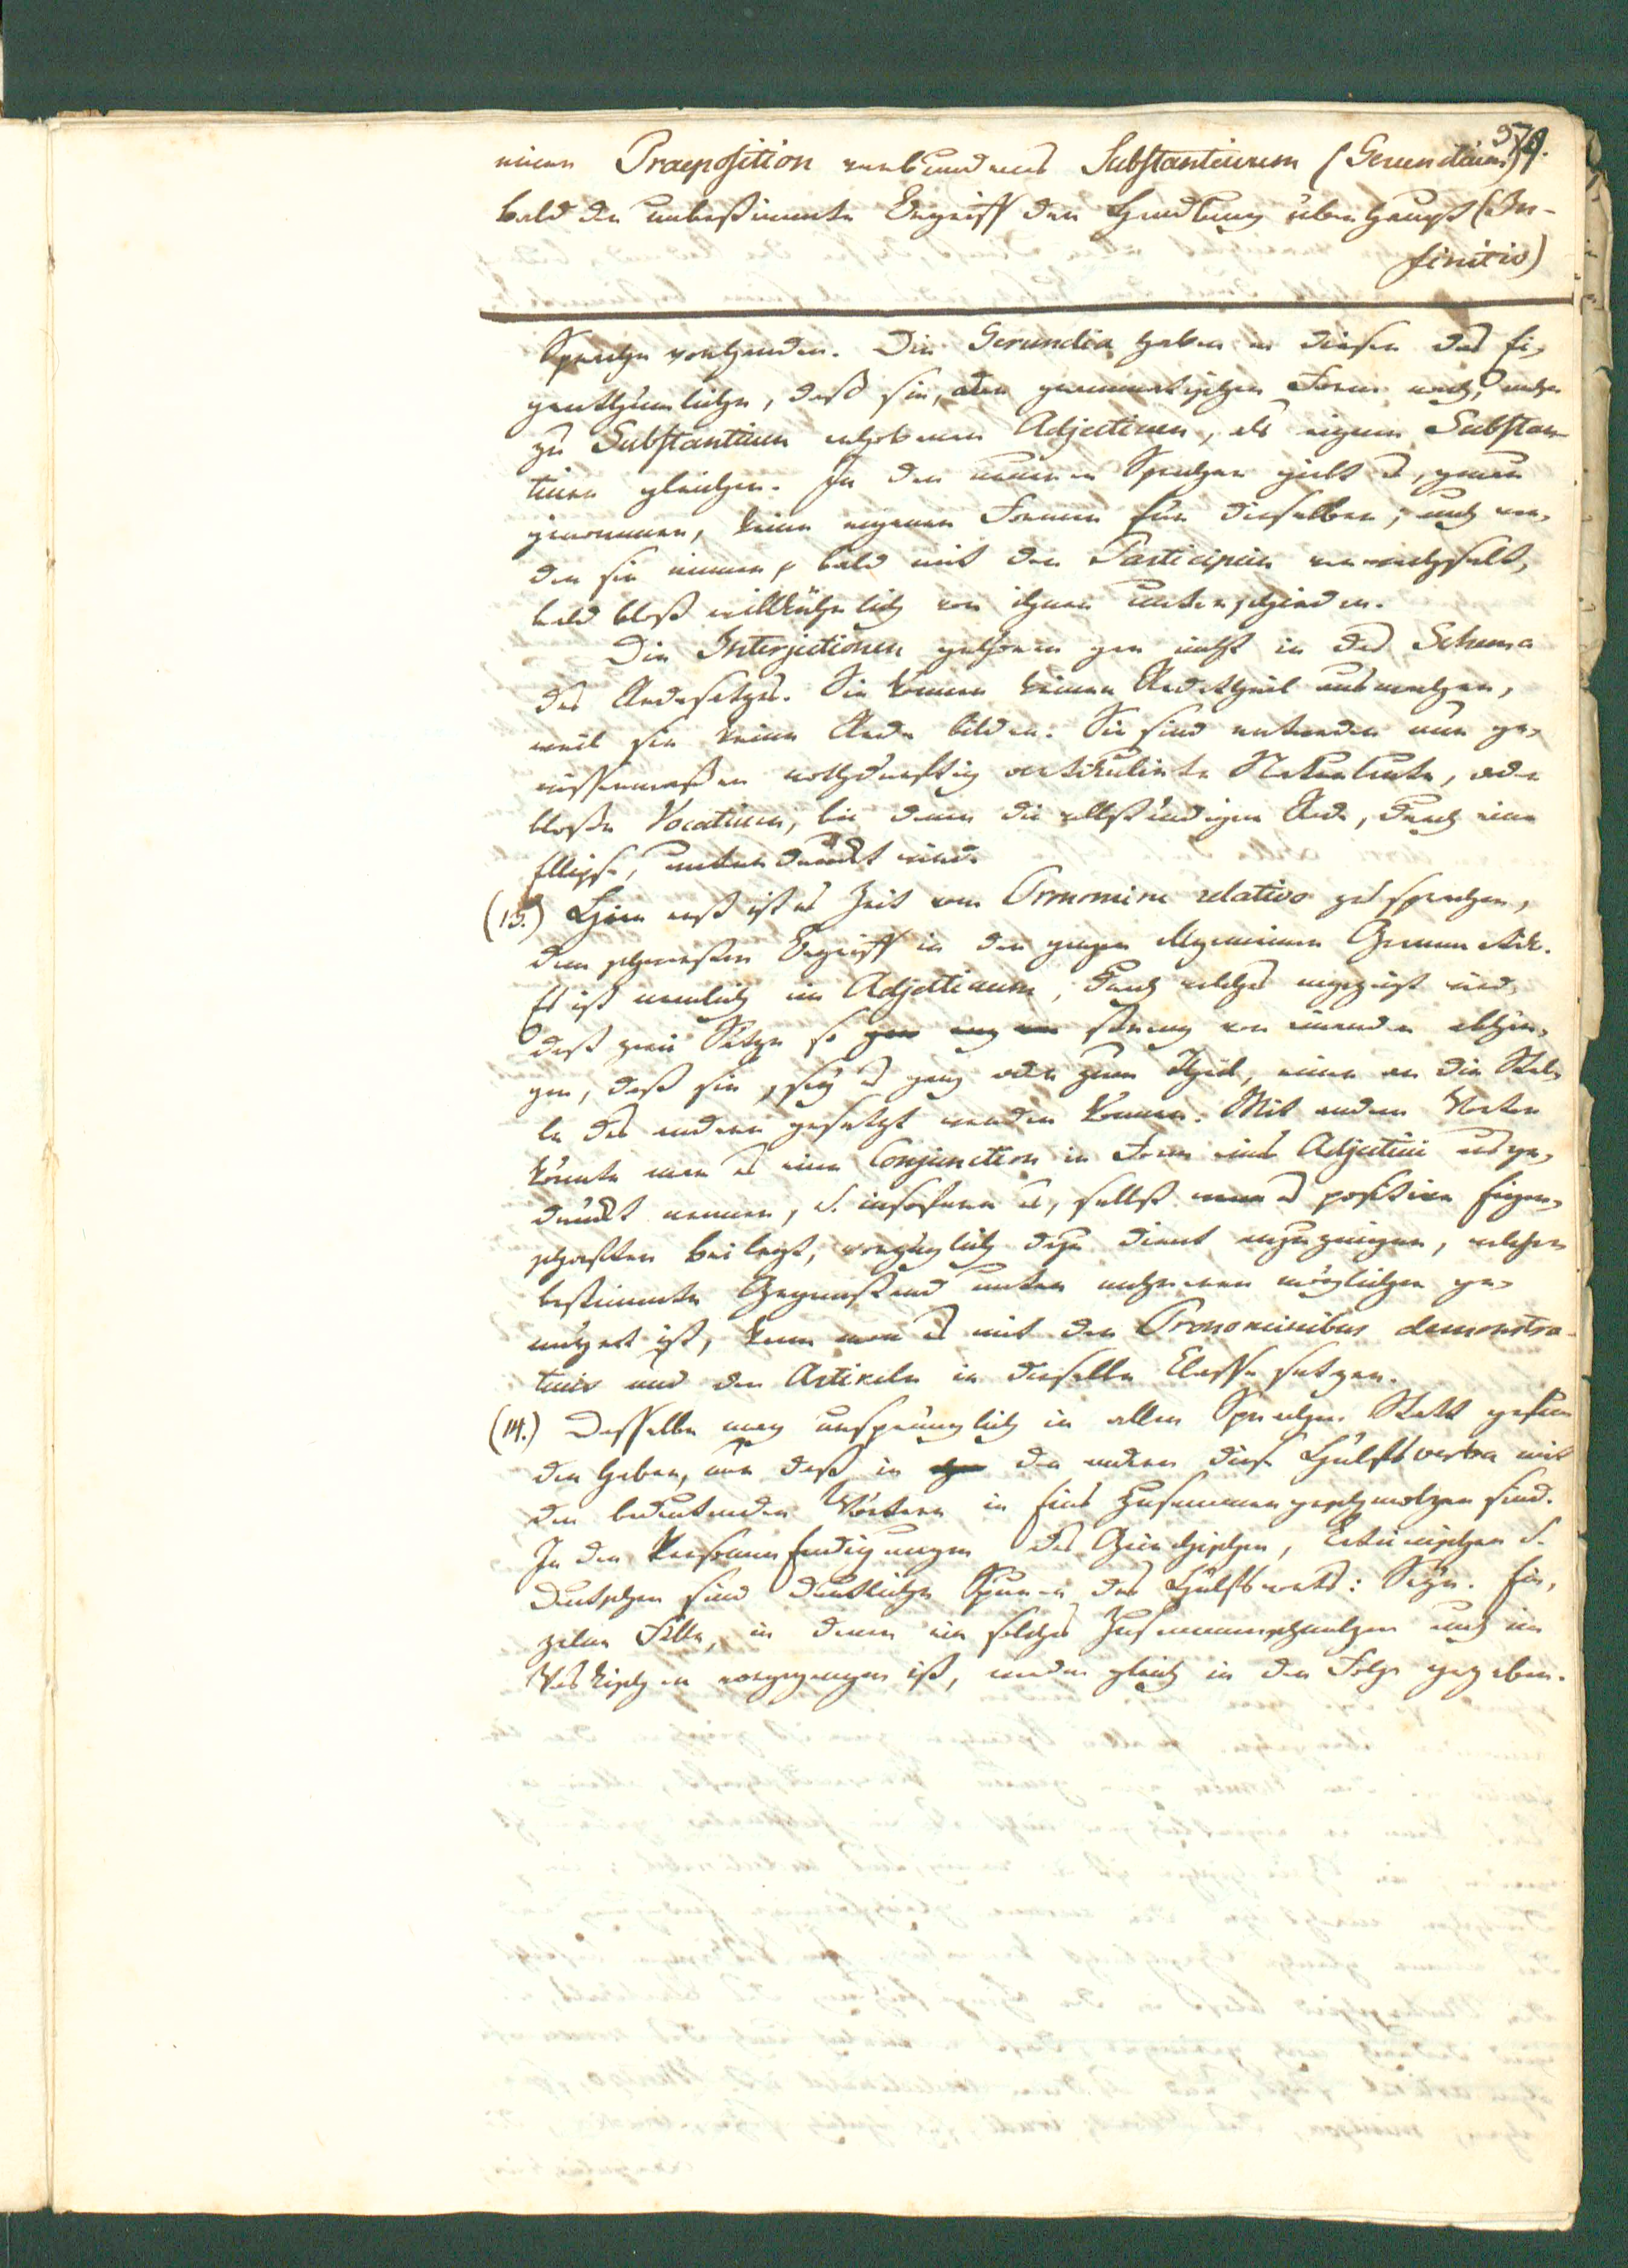 579.
einer Praeposition verbundenes Substantivum (Gerundium)
bald der unbestimmte Begriff der Handlung überhaupt (In-
finitiv)
Sprache vorhanden. Die Gerundia haben in diesen das Ei-
genthümliche, daß sie, der grammatischen Form nach, mehr
zu Substantiven erhobenen Adjectiven, als eigenen Substan-
tiven gleichen. In den neueren Sprachen giebt es, genau
genommen, keine eigenen Formen für dieselben; auch wer-
den sie immer, bald mit den Participien verwechselt,
bald bloß willkührlich von ihnen unterschieden.
Die Interjectionen gehören gar nicht in das Schema
des Redesatzes. Sie können keinen Redetheil ausmachen,
weil sie keine Rede bilden. Sie sind entweder nur ge-
wissermaßen nothdürftig artikulirte Naturlaute, oder
bloße Vocativi, bei denen die vollständige Rede, durch eine
Ellipse, unterdrückt wird.
(13.) Hier erst ist es Zeit vom Pronomine relativo zu sprechen,
dem schwersten Begriff in der ganzen allgemeinen Grammatik.
Es ist nemlich ein Adjectivum, durch welches angezeigt wird,
daß zwei Sätze so streng von einander abhän-
gen, daß sie, sey es ganz oder zum Theil, einer an die Stel-
le des andern gesetzt werden können. Mit andern Worten
könnte man es eine Conjunction in Form eines Adjectivi ausge-
drückt nennen, u. insofern es, selbst positive Eigen-
schaften beilegt, vorzüglich dazu dient anzuzeigen, welcher
bestimmte Gegenstand unter mehreren möglichen ge-
meint ist, kann man es mit den Pronominibus demonstra-
tivis und den Artikeln in dieselbe Classe setzen.
(14.) Dasselbe mag ursprünglich in allen Sprachen Statt gefun-
den haben, nur daß in den andern diese Hülfsverba mit
den bedeutenden Wörtern in Eins zusammengeschmolzen sind.
In den Personenendigungen des Griechischen, Lateinischen u.
Deutschen sind deutliche Spuren des Hülfsworts: Seyn. Ein-
zelne Fälle, in denen ein solches Zusammenschmelzen auch im
Vaskischen vorgegangen ist, werden gleich in der Folge gegeben.